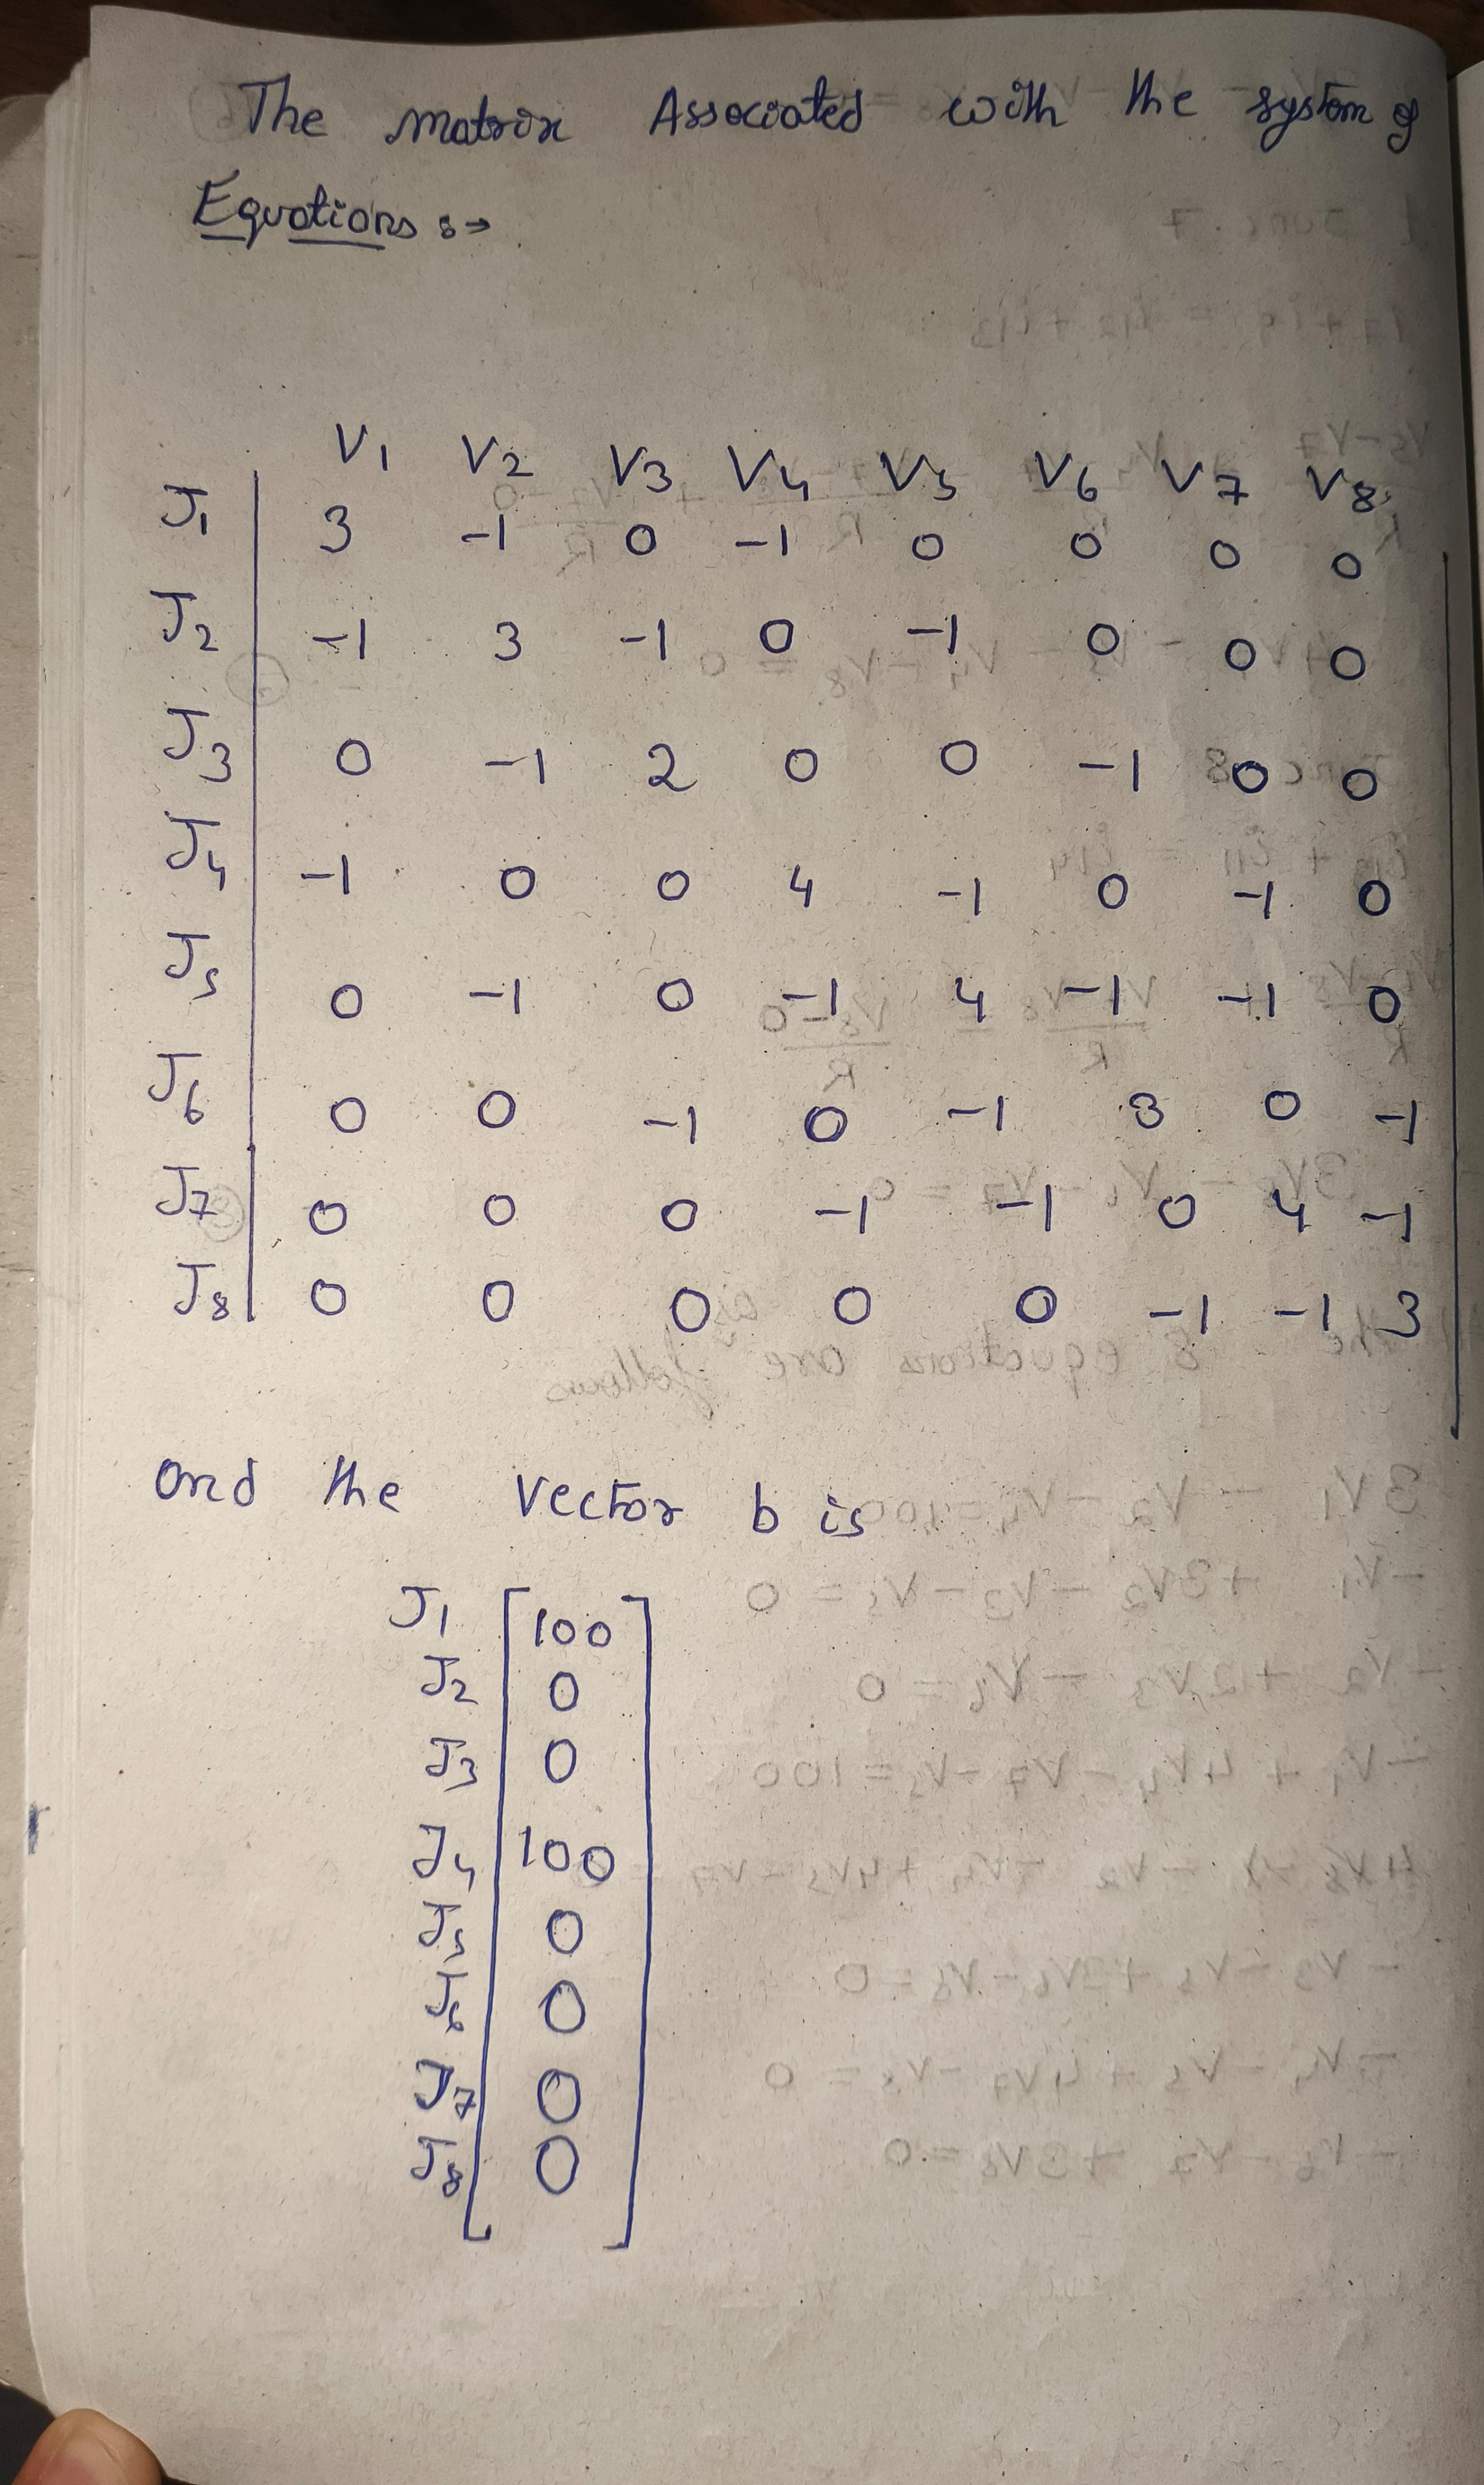 The matrix Associated with the system of
Equations :->
V1 V2 V3 V4 V5 V6 V7 V8
J1 3 -1 0 -1 0 0 0 0
J2 -1 3 -1 0 -1 0 0 0
J3 0 -1 2 0 0 -1 0 0
J4 -1 0 0 4 -1 0 -1 0
J5 0 -1 0 -1 4 -1 -1 0
J6 0 0 -1 0 -1 3 0 -1
J7 0 0 0 -1 -1 0 4 -1
J8 0 0 0 0 0 -1 -1 3
and the vector b is
J1 100
J2 0
J3 0
J4 100
J5 0
J6 0
J7 0
J8 0